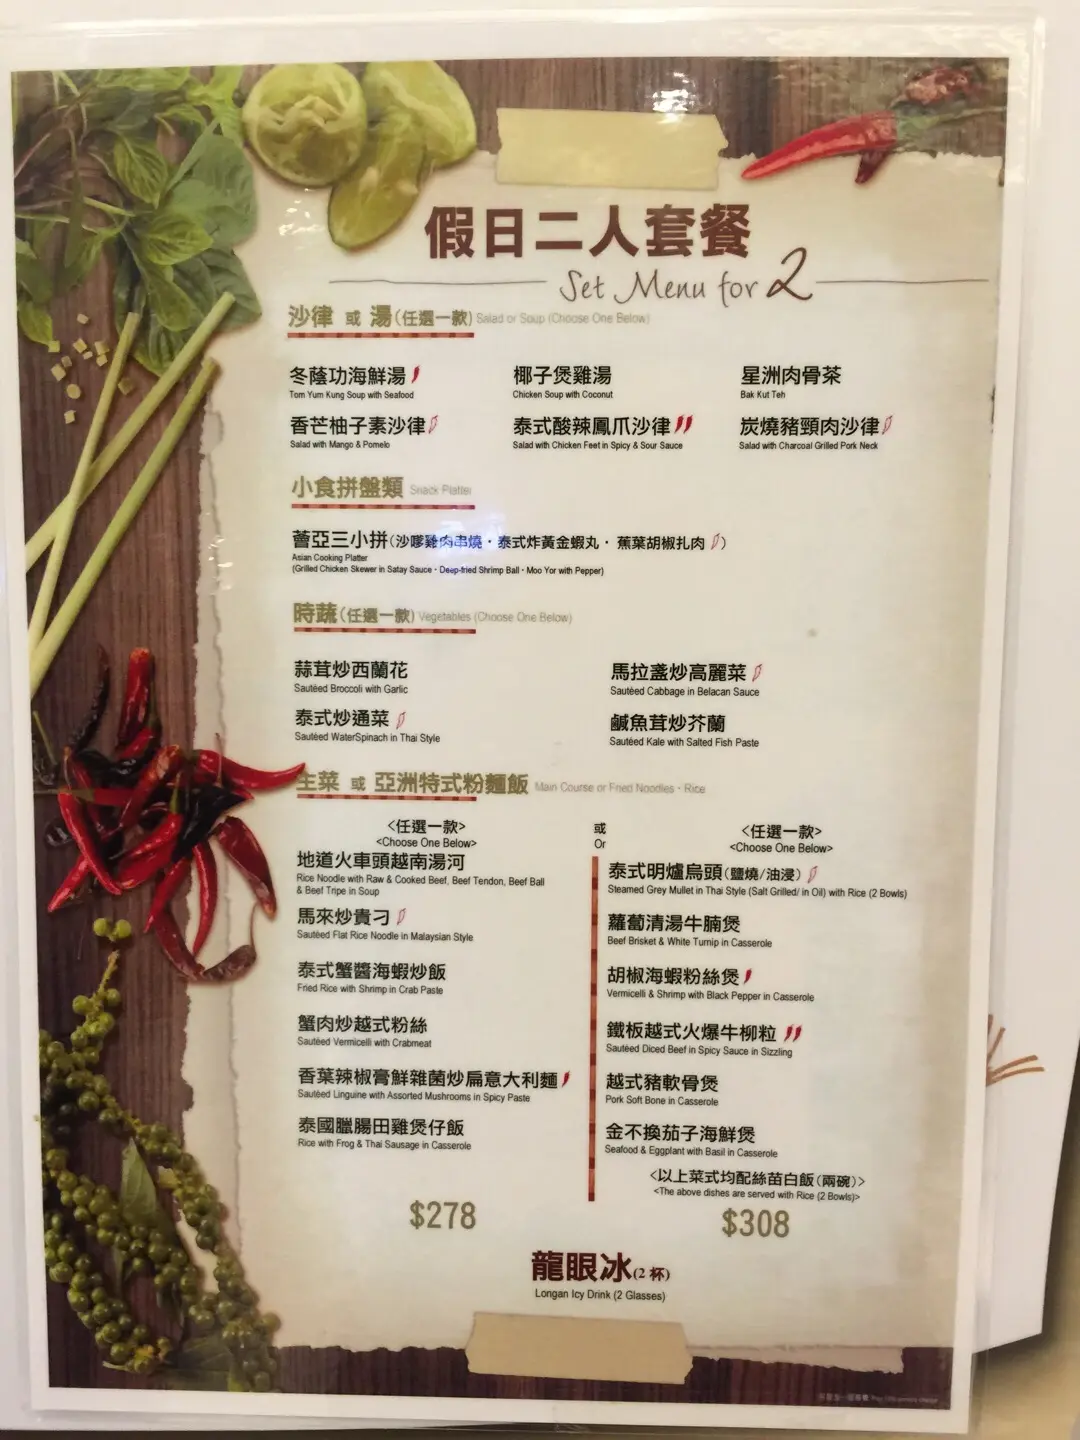 假日二人套餐
Set Menu for 2
沙律 或 湯(任選一款) Salad or Soup (Choose One Below)
冬蔭功海鮮湯 椰子煲雞湯 星洲肉骨茶
Tom Yum Kung Soup with Seafood Chicken Soup with Coconut Bak Kut Teh
香芒柚子素沙律 泰式酸辣鳳爪沙律 炭燒豬頸肉沙律
Salad with Mango & Pomelo Salad with Chicken Feet in Spicy & Sour Sauce Salad with Charcoal Grilled Pork Neck
小食拼盤類 Snack Platter
薈亞三小拼(沙嗲雞肉串燒・泰式炸黃金蝦丸・蕉葉胡椒扎肉)
Asian Cooking Platter
(Grilled Chicken Skewer in Satay Sauce・Deep-fried Shrimp Ball・Moo Yor with Pepper)
時蔬(任選一款) Vegetables (Choose One Below)
蒜茸炒西蘭花 馬拉盞炒高麗菜
Sautéed Broccoli with Garlic Sautéed Cabbage in Belacan Sauce
泰式炒通菜 鹹魚茸炒芥蘭
Sautéed WaterSpinach in Thai Style Sautéed Kale with Salted Fish Paste
主菜 或 亞洲特式粉麵飯 Main Course or Fried Noodles・Rice
<任選一款>
<Choose One Below>
地道火車頭越南湯河
Rice Noodle with Raw & Cooked Beef, Beef Tendon, Beef Ball
& Beef Tripe in Soup
馬來炒貴刁
Sautéed Flat Rice Noodle in Malaysian Style
泰式蟹醬海蝦炒飯
Fried Rice with Shrimp in Crab Paste
蟹肉炒越式粉絲
Sautéed Vermicelli with Crabmeat
香葉辣椒膏鮮雜菌炒扁意大利麵
Sautéed Linguine with Assorted Mushrooms in Spicy Paste
泰國臘腸田雞煲仔飯
Rice with Frog & Thai Sausage in Casserole
$278
或
Or
<任選一款>
<Choose One Below>
泰式明爐烏頭(鹽燒/油浸)
Steamed Grey Mullet in Thai Style (Salt Grilled/ in Oil) with Rice (2 Bowls)
蘿蔔清湯牛腩煲
Beef Brisket & White Turnip in Casserole
胡椒海蝦粉絲煲
Vermicelli & Shrimp with Black Pepper in Casserole
鐵板越式火爆牛柳粒
Sautéed Diced Beef in Spicy Sauce in Sizzling
越式豬軟骨煲
Pork Soft Bone in Casserole
金不換茄子海鮮煲
Seafood & Eggplant with Basil in Casserole
<以上菜式均配絲苗白飯(兩碗)>
<The above dishes are served with Rice (2 Bowls)>
$308
龍眼冰(2 杯)
Longan Icy Drink (2 Glasses)